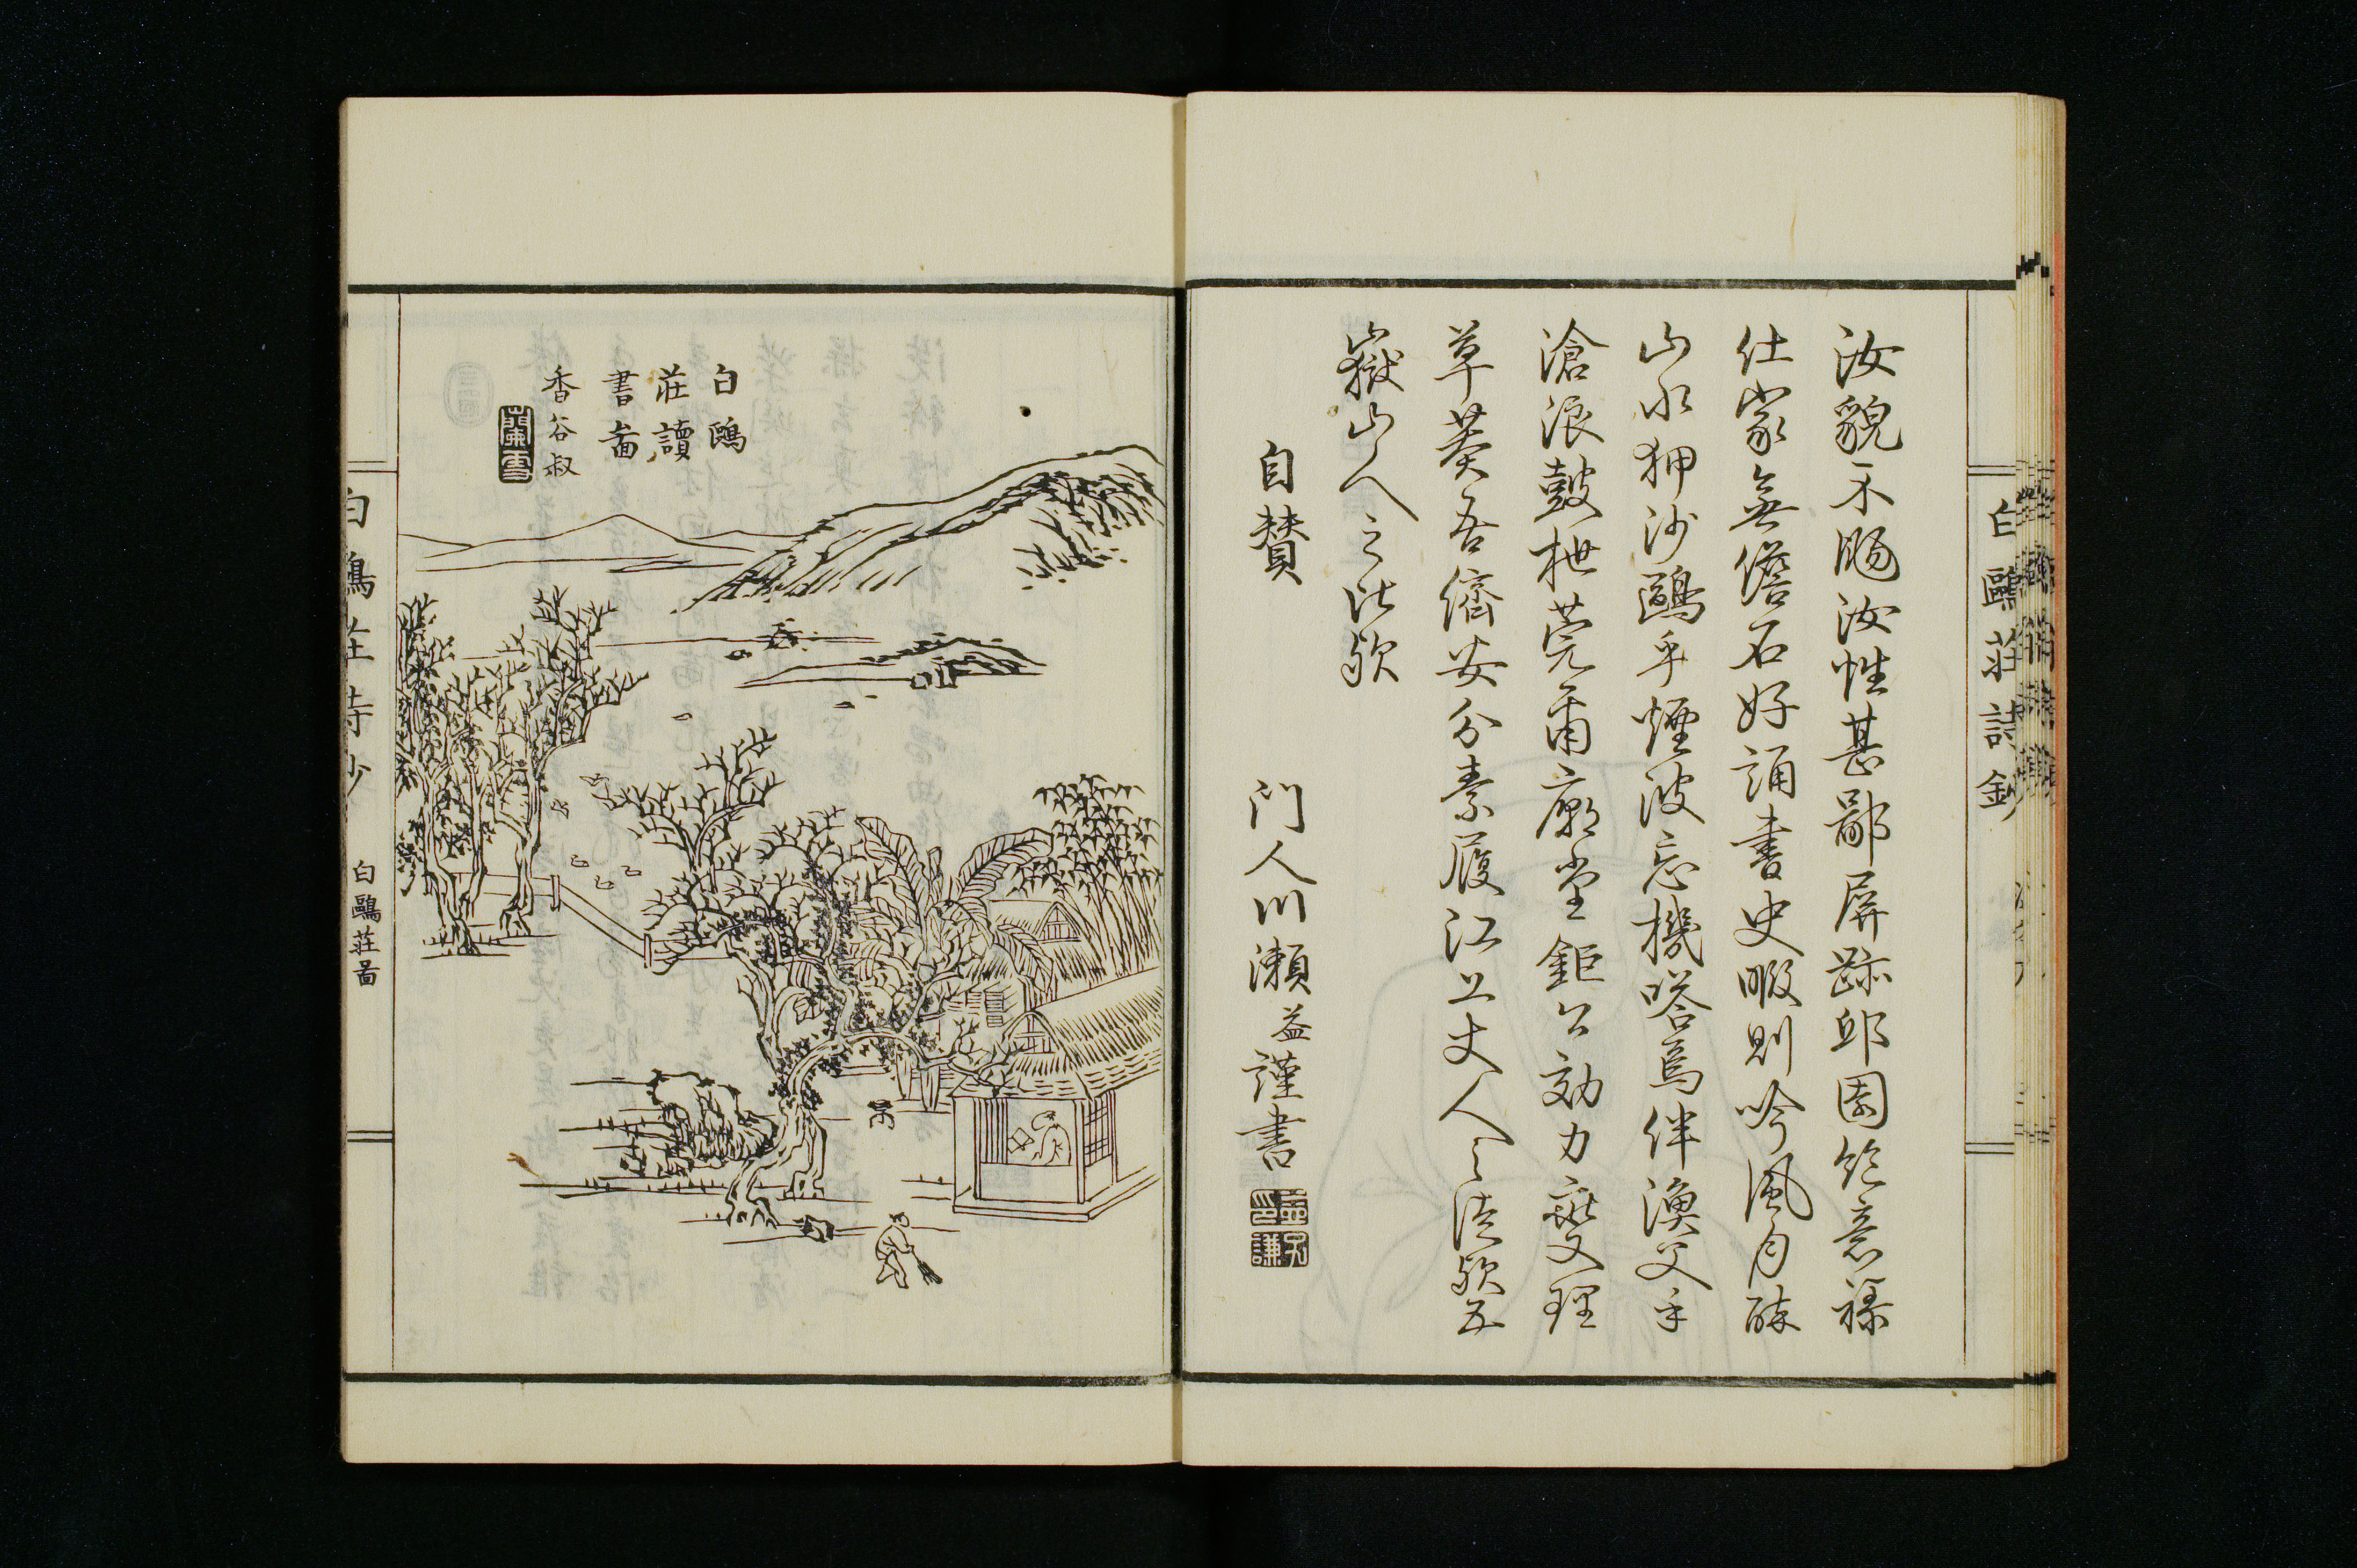 白鷗莊詩鈔
汝貌不颺汝性甚鄙屏跡邱園絶意祿
仕家無儋石好誦書史暇則吟風月醉
山水狎沙鷗乎煙波忘機嗒焉伴漁父乎
滄浪鼓枻莞爾廟堂鉅公効力燮理
草莽吾儕安分素履江上丈人之徒歟五
嶽山人之比歟
自贊
門人川瀨益謹書
白鷗
莊讀
書圖
香谷叔
蘭雪
白鷗莊詩鈔
白鷗莊圖